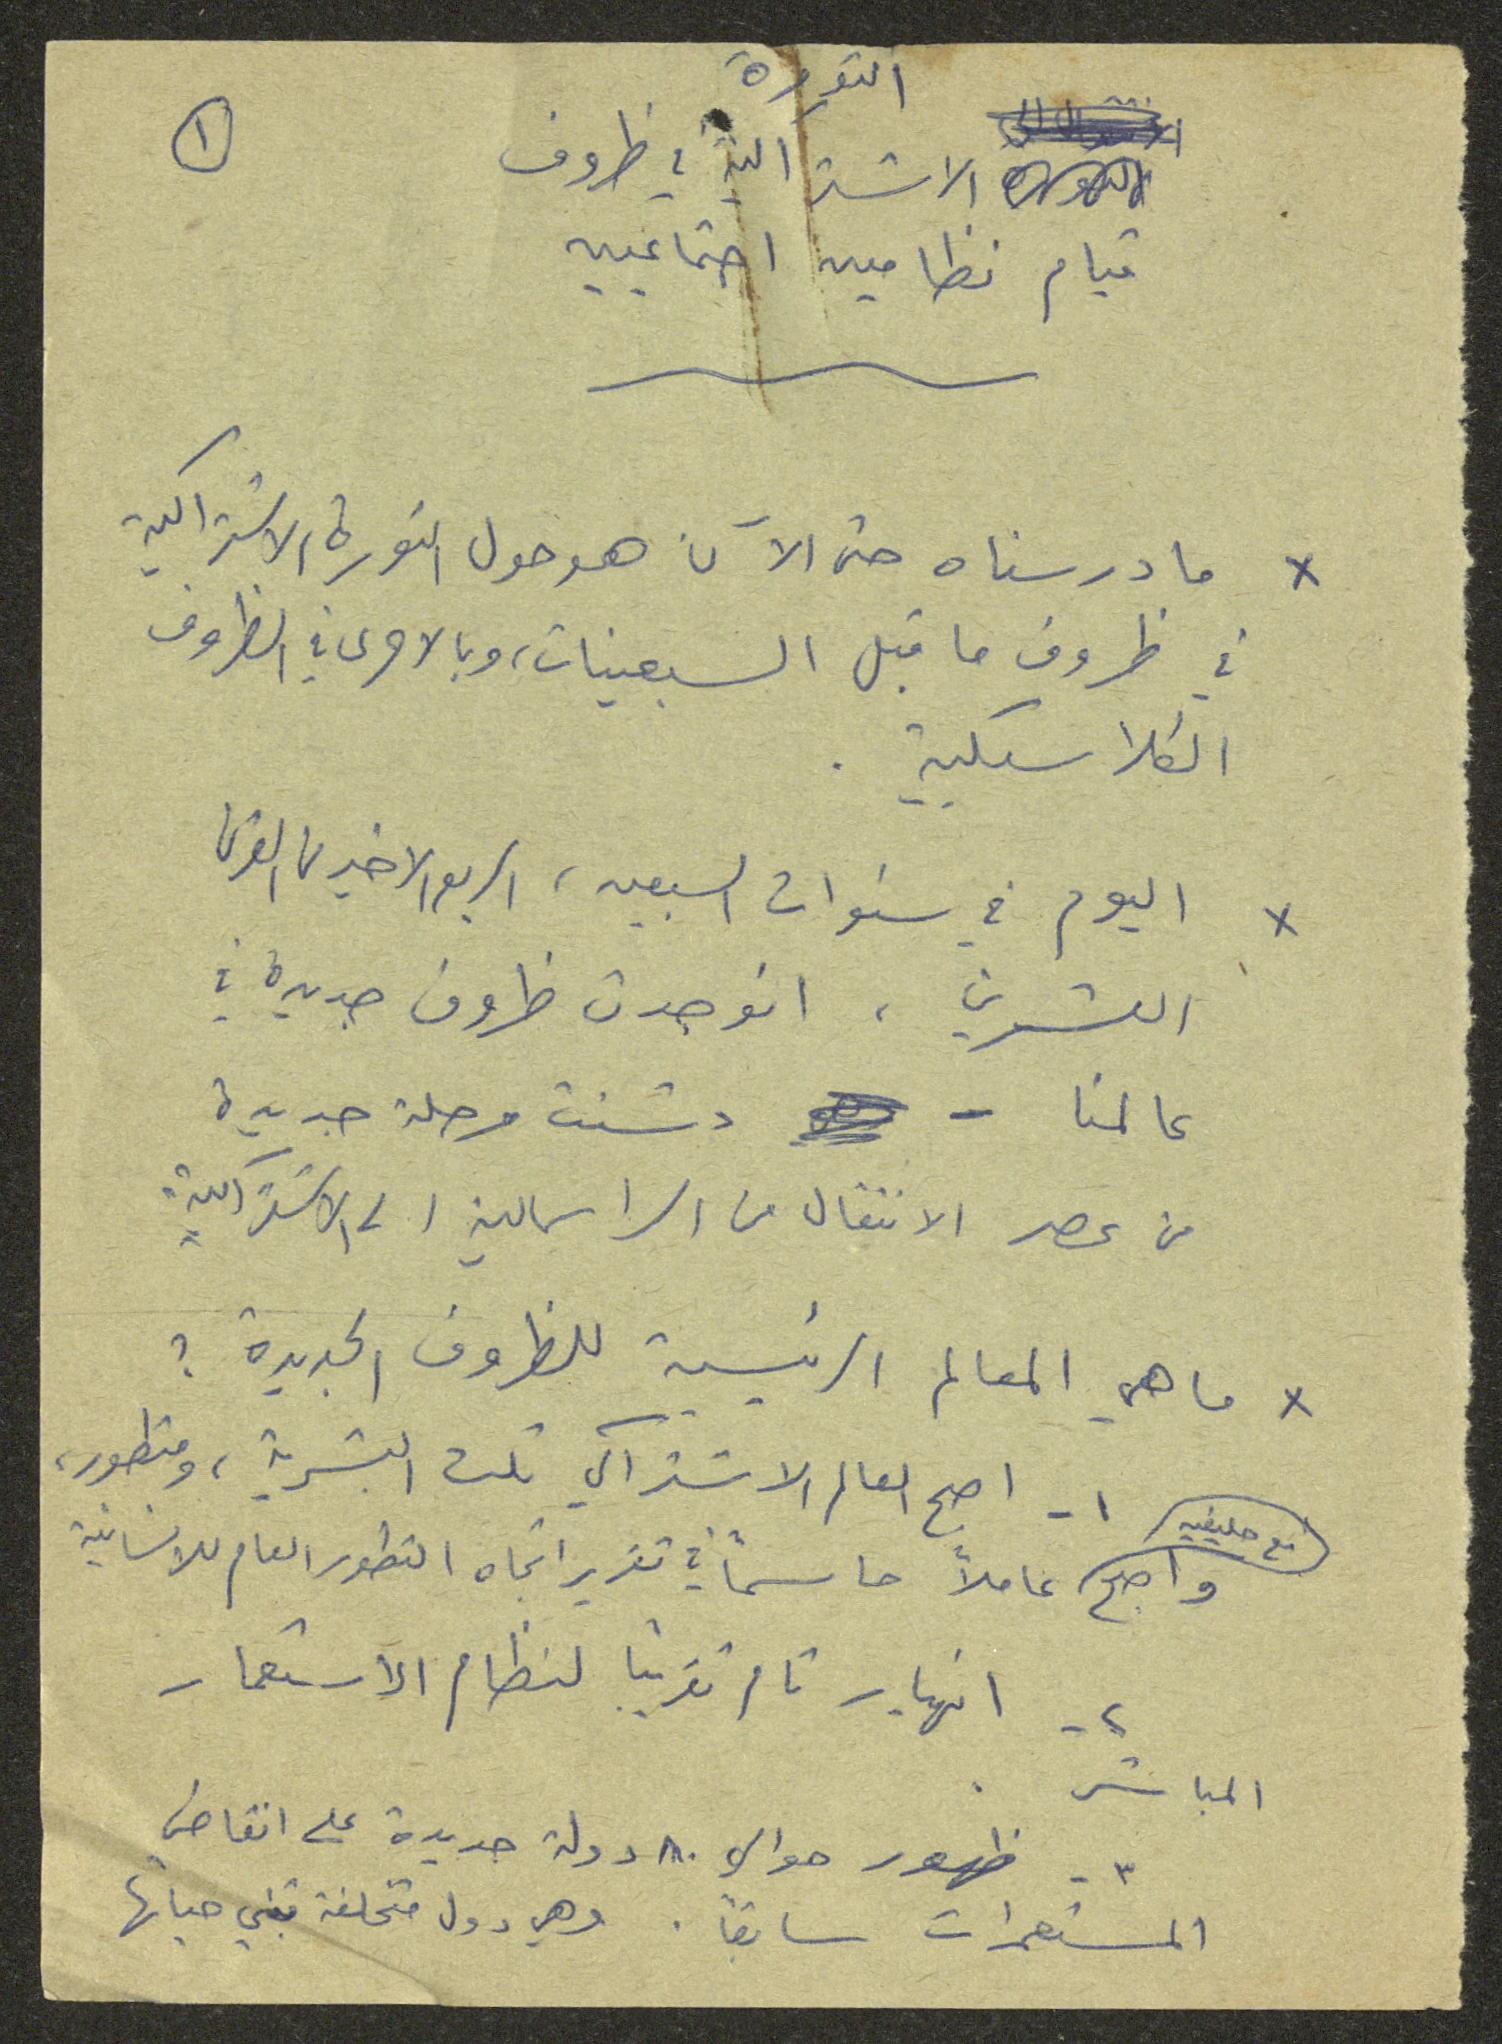 الثورة
①
الاشتراكية في ظروف
قيام نظامين اجتماعيين
× ما درسناه حتى الآن هو حول الثورة الاشتراكية
في ظروف ما قبل السبعينات، وبالاحرى في الظروف
الكلاسيكية .
× اليوم في سنوات السبعين، الربع الاخير من القرن
العشرين ، انوجدت ظروف جديدة في
عالمنا - دشنت مرحلة جديدة
من عصر الانتقال من الراسمالية الى الاشتراكية.
× ما هي المعالم الرئيسية للظروف الجديدة ؟
١- اصبح العالم الاشتراكي ثلث البشرية، ومتطور،
مع حليفيه
واصبح عاملاً حاسماً في تقرير اتجاه التطور العام للانسانية
٢- انهيار تام تقريبا لنظام الاستعمار
المباشر .
٣- ظهور حوالي ٨٠ دولة جديدة على انقاض
المستعمرات سابقاً . وهي دول متخلفة تبني حياتها